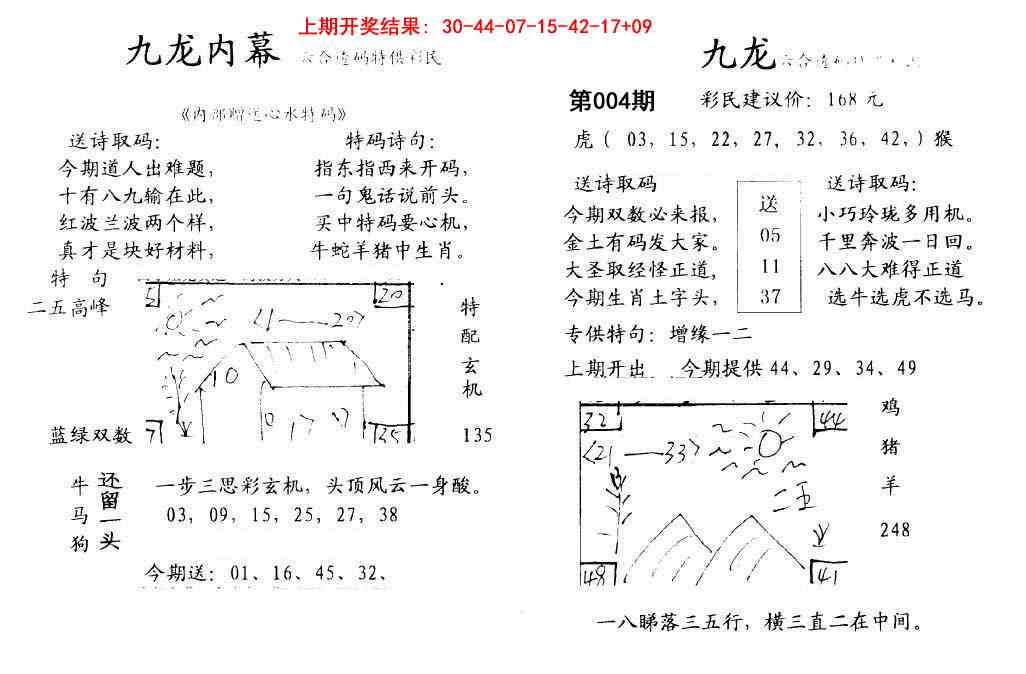 上期开奖结果：30-44-07-15-42-17+09
九龙内幕 六合透码特供彩民
《内部赠送心水特码》
送诗取码：
今期道人出难题，
十有八九输在此，
红波兰波两个样，
真才是块好材料，
特码诗句：
指东指西来开码，
一句鬼话说前头。
买中特码要心机，
牛蛇羊猪中生肖。
特 句
二五高峰
蓝绿双数
5
20
<1——20>
10
0 17 17
7
35
特
配
玄
机
135
牛
马
狗
还
留
一
头
一步三思彩玄机，头顶风云一身酸。
03，09，15，25，27，38
今期送：01、16、45、32、
九龙
第004期
彩民建议价：168元
虎（ 03，15，22，27，32，36，42，）猴
送诗取码
今期双数必来报，
金土有码发大家。
大圣取经怪正道，
今期生肖土字头，
送
05
11
37
送诗取码：
小巧玲珑多用机。
千里奔波一日回。
八八大难得正道
选牛选虎不选马。
专供特句：增缘一二
上期开出 今期提供44、29、34、49
32
44
<21——33>
二五
48
41
鸡
猪
羊
248
一八睇落三五行，横三直二在中间。